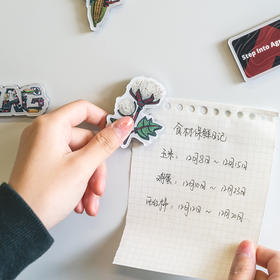 Step Into Agr
食材保鲜日记
玉米：12月8日～12月15日
鸡蛋：12月10日～12月23日
西红柿：12月12日～12月20日